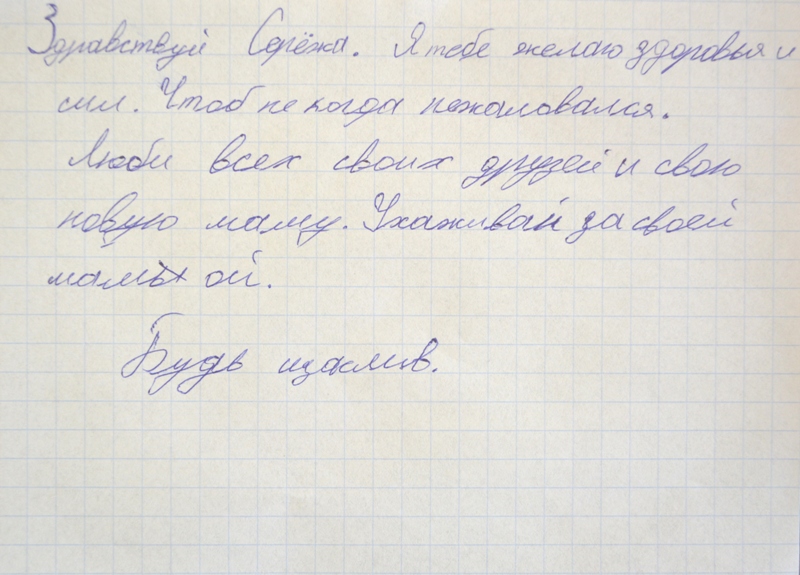 Здравствуй Серёжа. Я тебе желаю здоровья и
сил. Чтоб не когда не жаловался.
Люби всех своих друзей и свою
новую маму. Ухаживай за своей
мамой.
Будь щаслив.